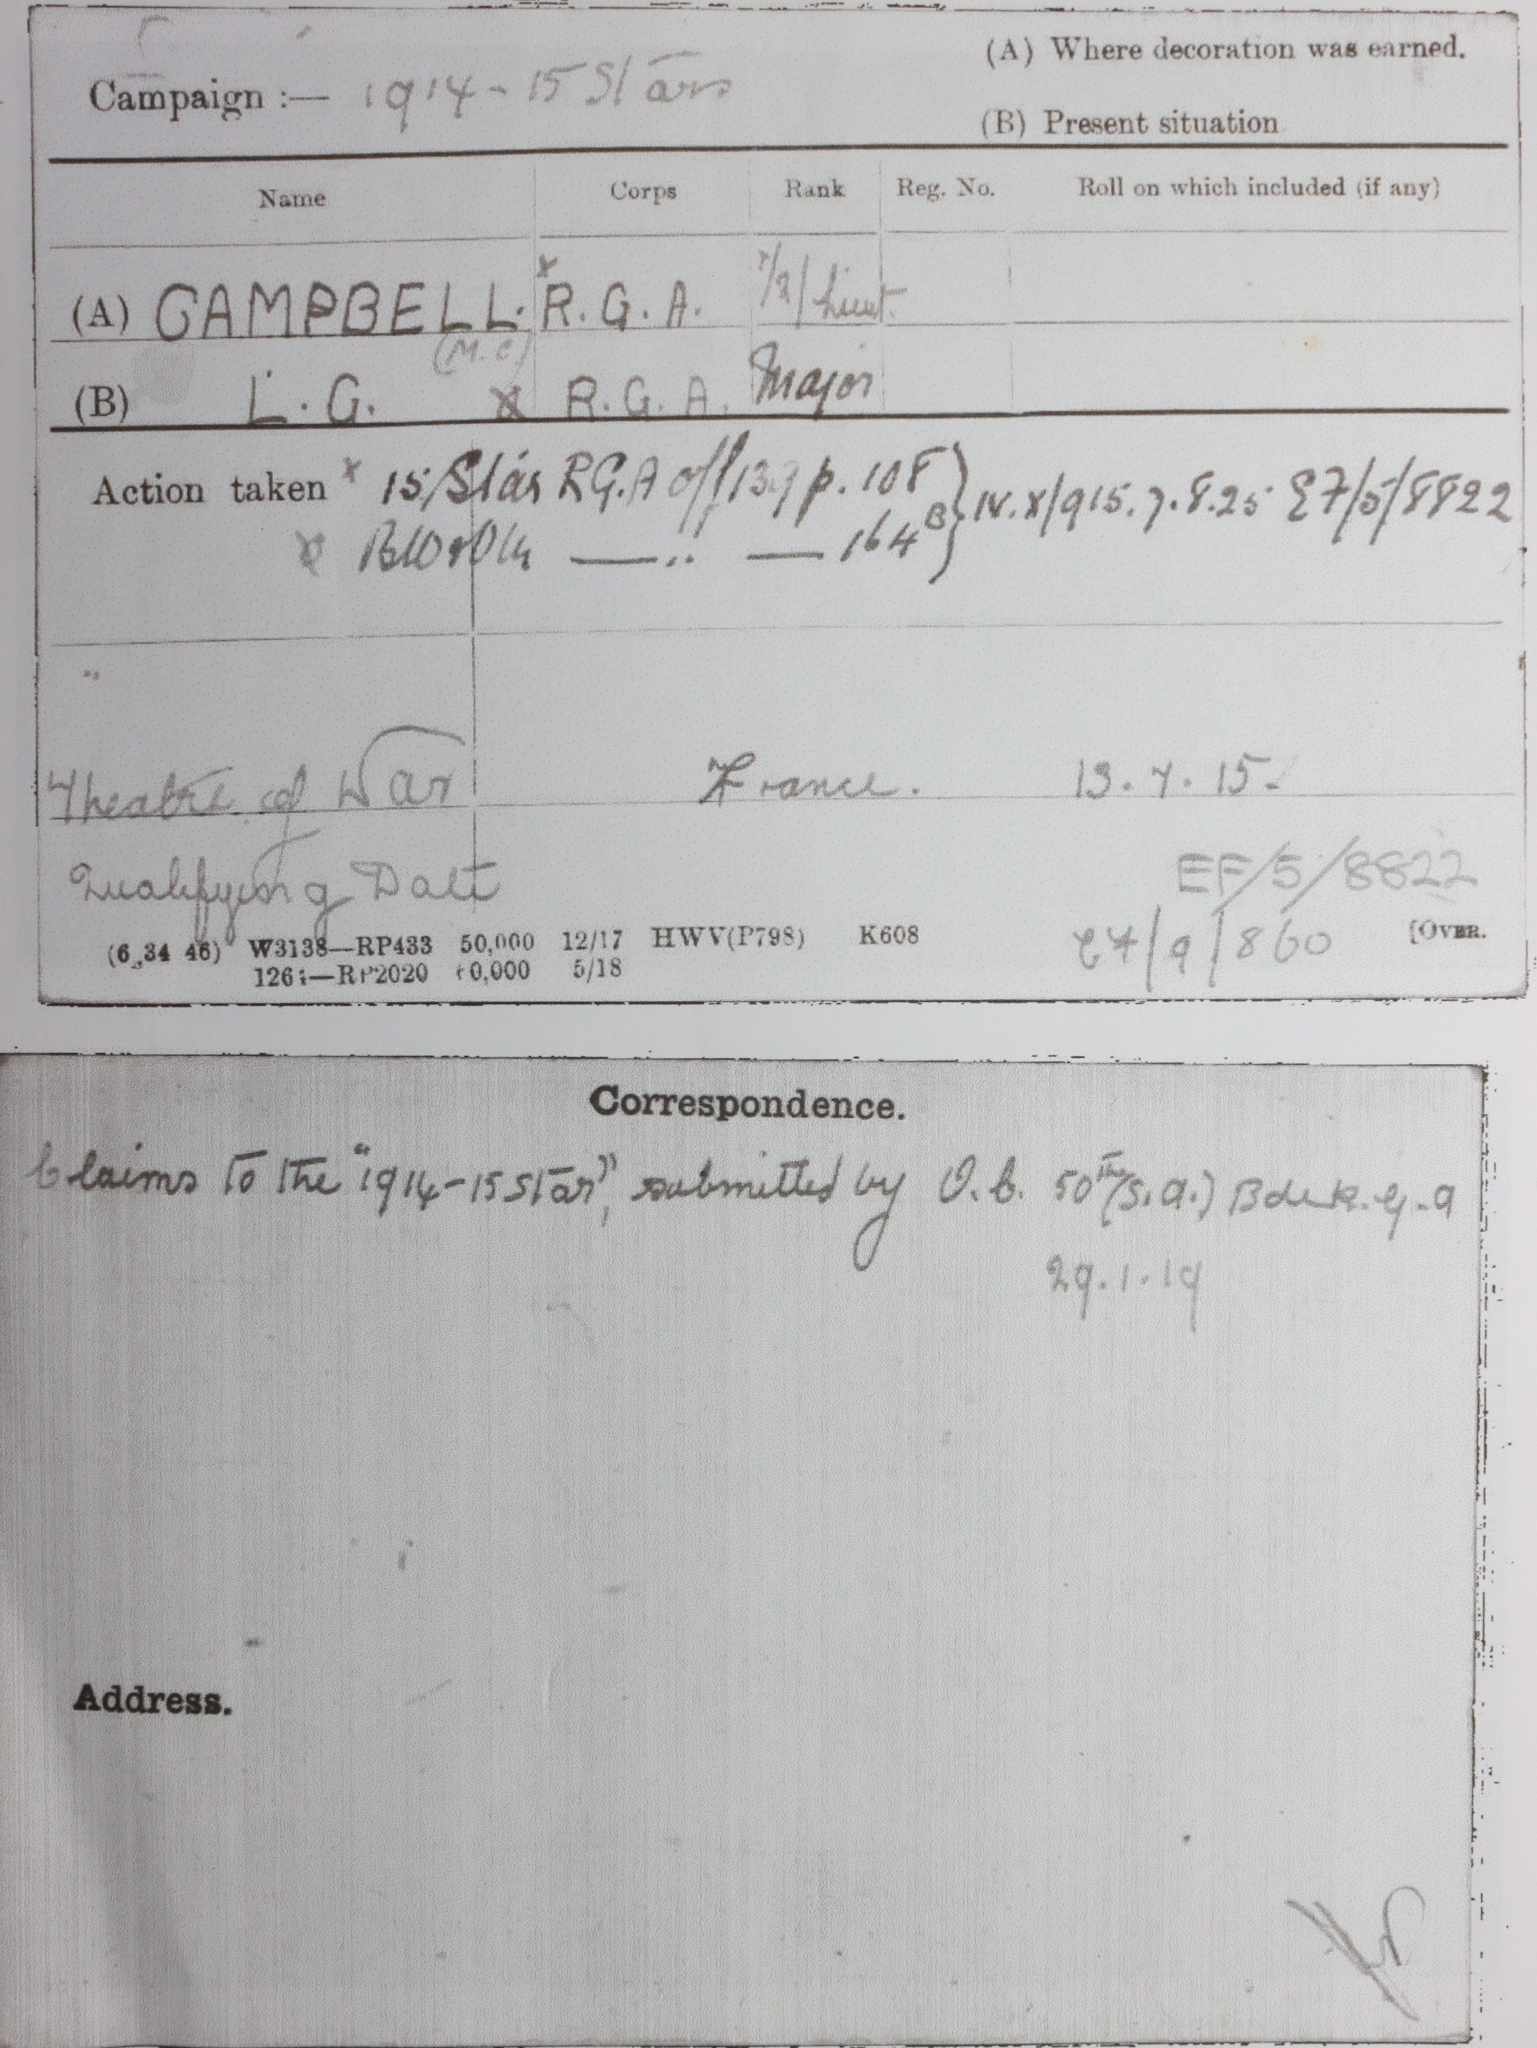 Campaign :— 1914-15 Stars
(A) Where decoration was earned.
(B) Present situation
Name Corps Rank Reg. No. Roll on which included (if any)
(A) CAMPBELL. x R.G.A. T/2/Lieut.
(M.C)
(B) L. G. x R.G.A. Major
Action taken x 15/Star RGA off 139 p. 108 B } IV.X/915. 7.8.25 E7/5/8822
x BW&VM — " — 164 B
Theatre of War France. 13.7.15.
Qualifying Date EF/5/8822
(6 34 46) W3138—RP433 50,000 12/17 HWV(P798) K608 E7/9/860 [OVER.
1264—RP2020 50,000 5/18
Correspondence.
Claims to the "1914-15 Star", submitted by O.C. 50th (S.A.) Bde R.G.A
29.1.19
Address.